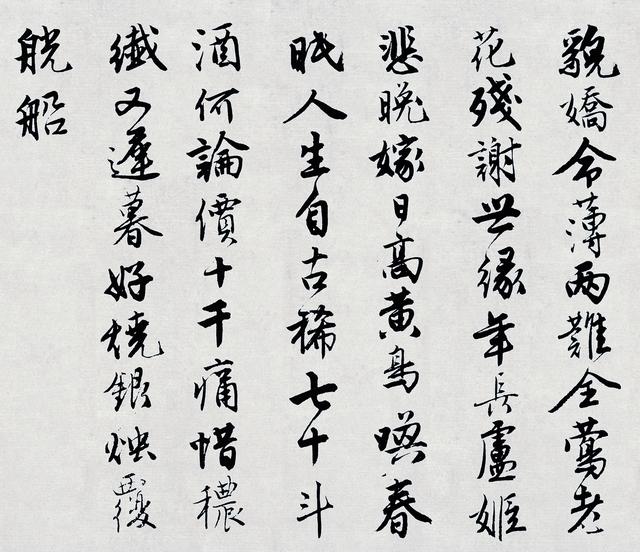 貌嬌命薄兩難全鶯老
花殘謝世緣年長盧姬
悲晚嫁日高黃鳥喚春
眠人生自古稀七十斗
酒何論價十千痛惜穠
纖又遲暮好燒銀燭覆
觥船